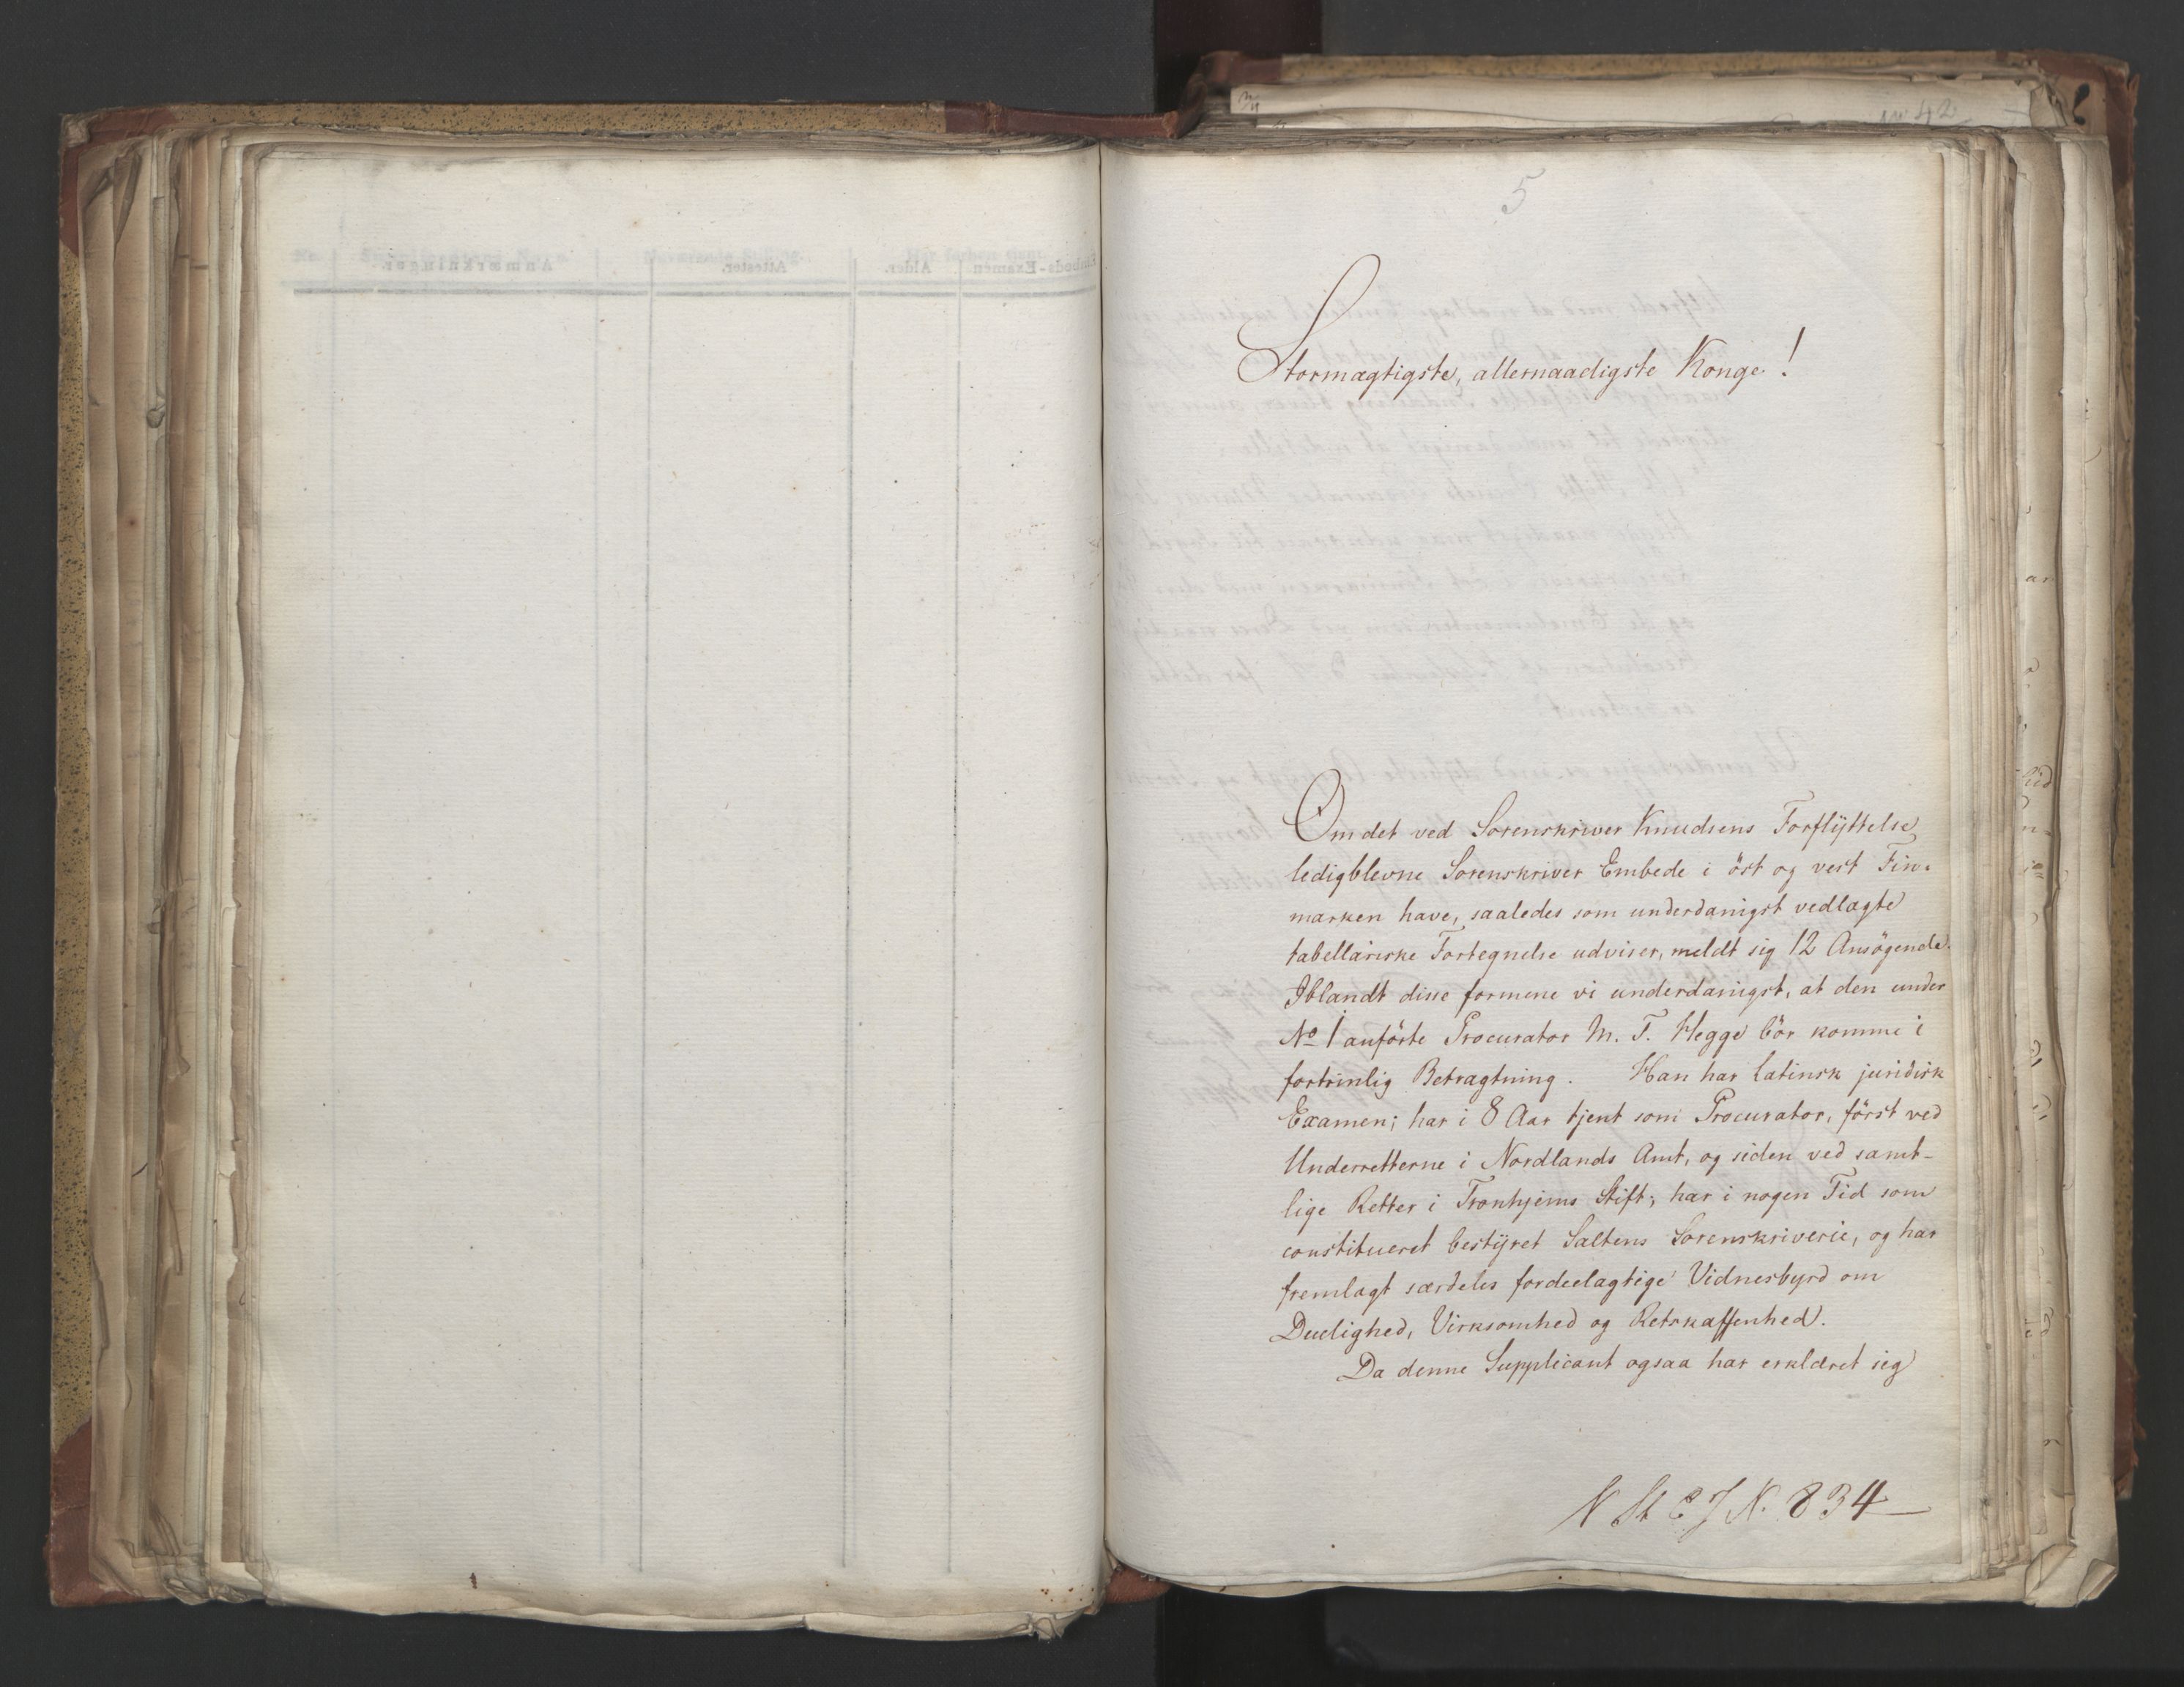 5
Stormægtigste, allernaadigste Konge!
Om det ved Sorenskriver Knudsens Forflÿttelse
ledigblevne Sorenskriver Embede i öst og vest Fin-
marken have, saaledes som underdanigst vedlagte
tabellariske Fortegnelse udviser, meldt sig 12 Ansögende.
Iblandt disse formene vi underdanigst, at den under
No 1 anförte Procurator M. F. Hegge bör komme i
fortrinlig Betragtning. Han har latinsk juridisk
Examen; har i 8 Aar tjent som Procurator, först ved
Underretterne i Nordlands Amt, og siden ved samt-
lige Retter i Tronhjems Stift; har i nogen Tid som
constitueret bestÿret Saltens Sorenskriverie, og har
fremlagt særdeles fordeelagtige Vidnesbyrd om
Duelighed, Virksomhed og Retskaffenhed.
Da denne Supplicant ogsaa har erklæret sig
N St C J N. 834
No 42
Anmærkninger.
Attester.
Alder.
Embeds-Examen